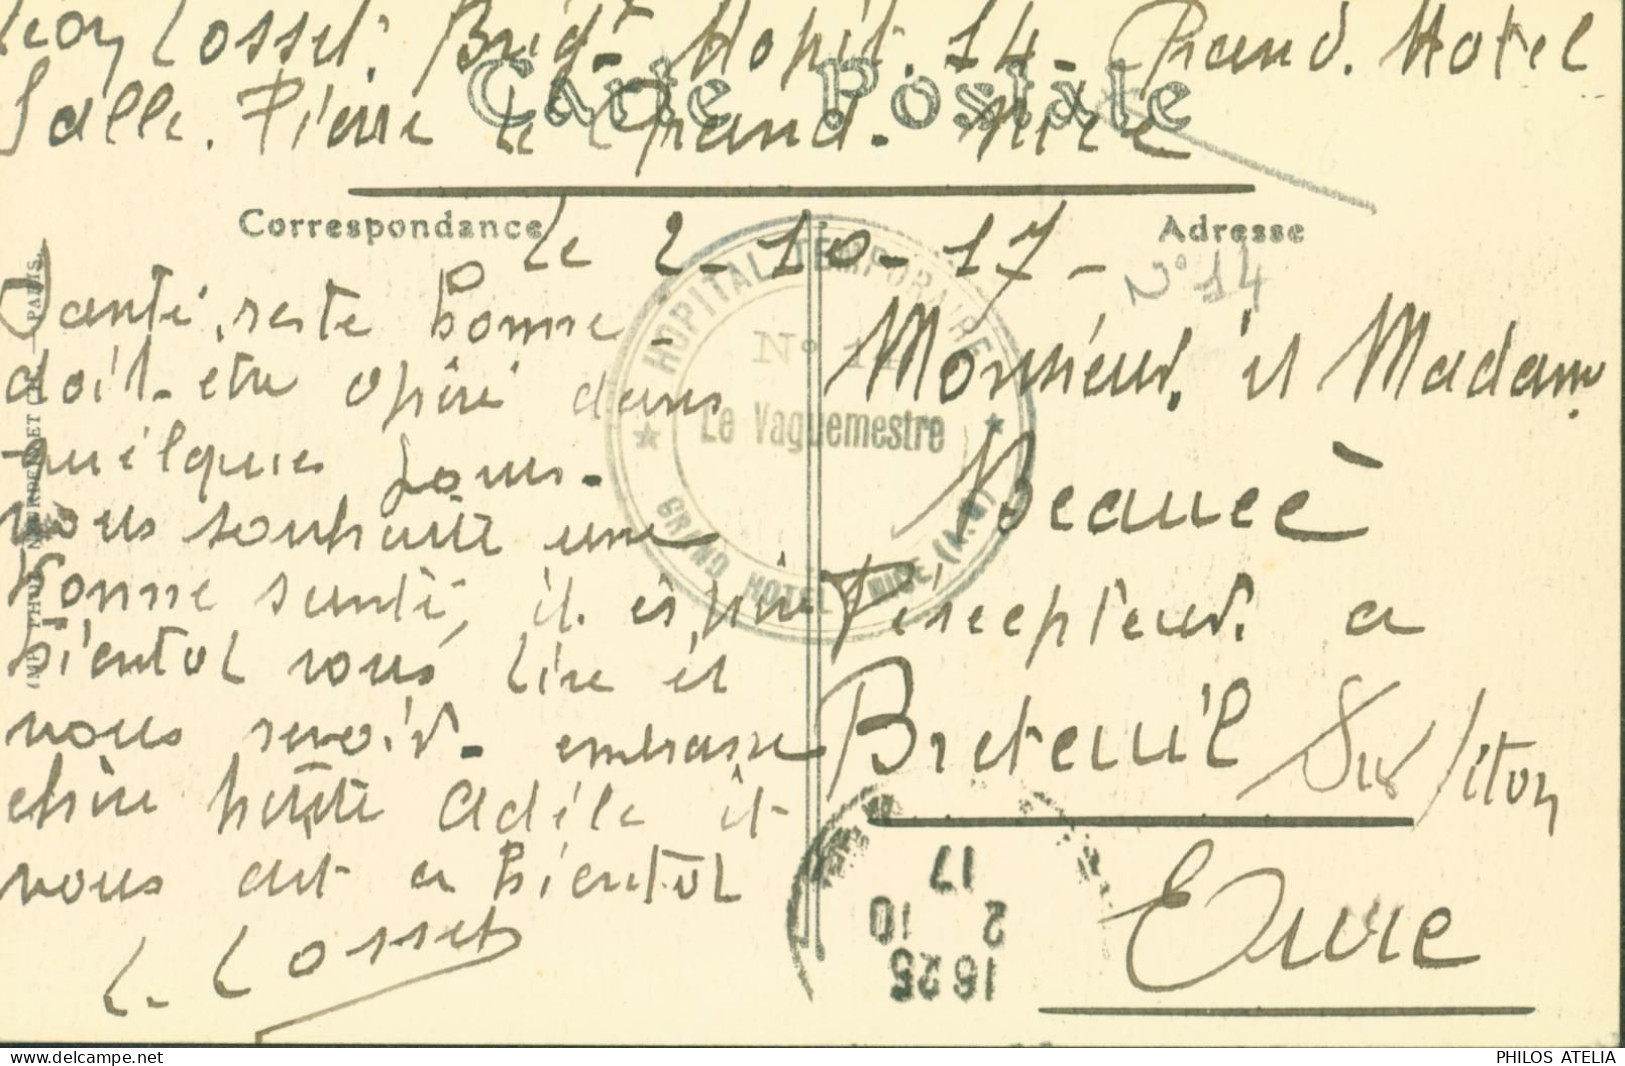 Léon Cosset. Brigt. Hopit. 14 - Grand. Hotel
Salle. Pierre le Grand. Nice
Carte Postale
Correspondance
Adresse
Le 2-10-17-
N° 14
Santé, reste bonne
doit-etre opéré dans
quelques Jours.
vous souhaite une
bonne santé, il espère
bientot vous lire et
vous revoir - embrasse
chère petite Adèle et
vous dit a bientot
L. Cosset
Monsieur, et Madame
Beaucé
Percepteur. a
Breteuil Sur/iton
Eure
HOPITAL TEMPORAIRE
N° 14
Le Vaguemestre
GRAND HOTEL NICE (A.M)
16 25
2 10
17
PARIS.
PHILOS ATELIA